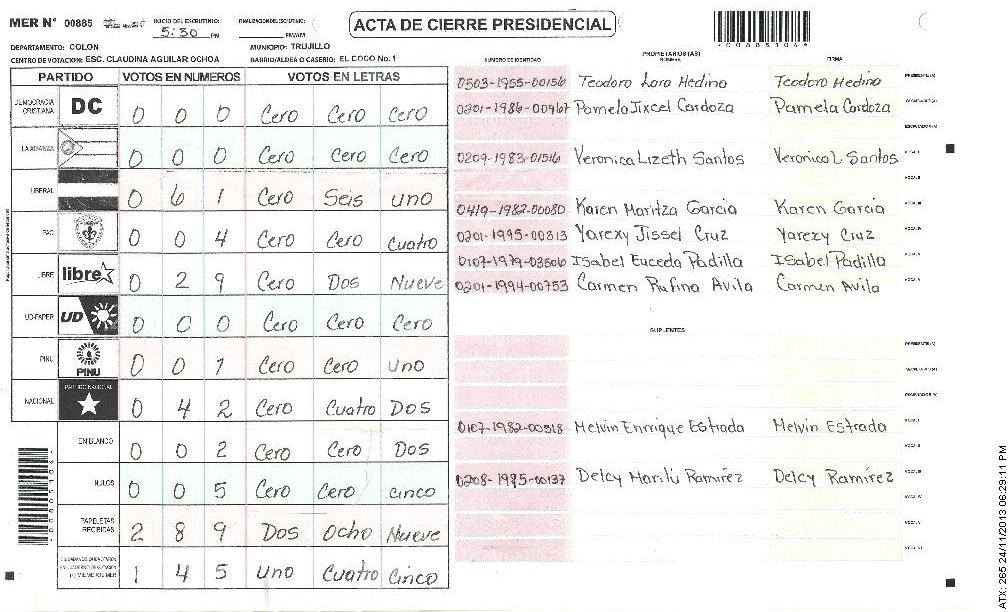 MER N° 00885
INICIO DEL ESCRUTINIO:
5:30 PM
FINALIZACION DEL ESCRUTINIO:
PM/AM
ACTA DE CIERRE PRESIDENCIAL
*00885104*
DEPARTAMENTO: COLON
MUNICIPIO: TRUJILLO
CENTRO DE VOTACION: ESC. CLAUDINA AGUILAR OCHOA
BARRIO/ALDEA O CASERIO: EL COCO No. 1
PARTIDO VOTOS EN NUMEROS VOTOS EN LETRAS
DEMOCRACIA CRISTIANA DC 0 0 0 Cero Cero Cero
LA ALIANZA 0 0 0 Cero Cero Cero
LIBERAL 0 6 1 Cero Seis uno
PAC 0 0 4 Cero Cero Cuatro
LIBRE libre 0 2 9 Cero Dos Nueve
UD-FAPER UD 0 0 0 Cero Cero Cero
PINU PINU 0 0 1 Cero Cero uno
NACIONAL PARTIDO NACIONAL 0 4 2 Cero Cuatro Dos
EN BLANCO 0 0 2 Cero Cero Dos
NULOS 0 0 5 Cero Cero cinco
PAPELETAS RECIBIDAS 2 8 9 Dos Ocho Nueve
1 4 5 uno Cuatro Cinco
PROPIETARIOS (AS)
NUMERO DE IDENTIDAD NOMBRE FIRMA
0503-1955-00156 Teodoro Lara Medina Teodoro Medina PRESIDENTE (A)
0201-1986-00467 Pamela Jixcel Cardoza Pamela Cardoza SECRETARIO (A)
ESCRUTADOR (A)
0209-1983-01516 Veronica Lizeth Santos Veronica L Santos VOCAL I
VOCAL II
0419-1982-00080 Karen Maritza Garcia Karen Garcia VOCAL III
0201-1995-00813 Yarexy Jissel Cruz Yarexy Cruz VOCAL IV
0107-1979-03506 Isabel Euceda Padilla Isabel Padilla VOCAL V
0201-1994-00753 Carmen Rufina Avila Carmen Avila
SUPLENTES
PRESIDENTE (A)
SECRETARIO (A)
ESCRUTADOR (A)
0107-1982-00518 Melvin Enrrique Estrada Melvin Estrada VOCAL I
VOCAL II
0208-1985-00137 Delcy Marilú Ramirez Delcy Ramirez VOCAL III
VOCAL IV
VOCAL V
VOCAL VI
*00885104*
ATX: 265 24/11/2013 06:29:11 PM